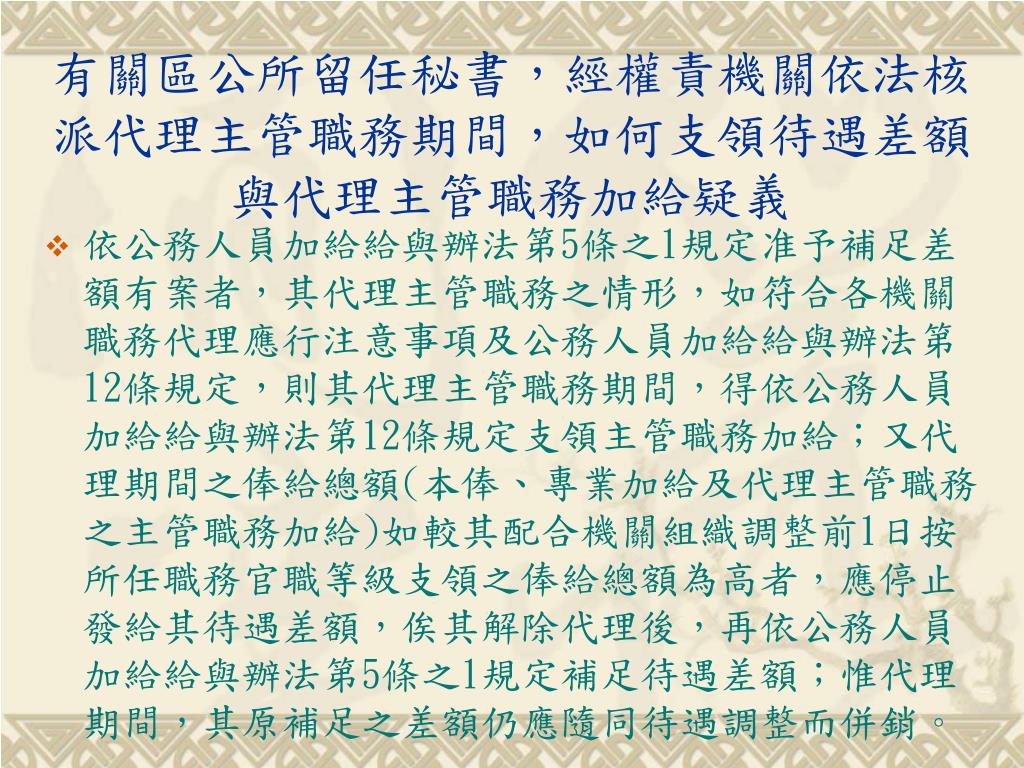 有關區公所留任秘書，經權責機關依法核
派代理主管職務期間，如何支領待遇差額
與代理主管職務加給疑義
依公務人員加給給與辦法第5條之1規定准予補足差
額有案者，其代理主管職務之情形，如符合各機關
職務代理應行注意事項及公務人員加給給與辦法第
12條規定，則其代理主管職務期間，得依公務人員
加給給與辦法第12條規定支領主管職務加給；又代
理期間之俸給總額(本俸、專業加給及代理主管職務
之主管職務加給)如較其配合機關組織調整前1日按
所任職務官職等級支領之俸給總額為高者，應停止
發給其待遇差額，俟其解除代理後，再依公務人員
加給給與辦法第5條之1規定補足待遇差額；惟代理
期間，其原補足之差額仍應隨同待遇調整而併銷。